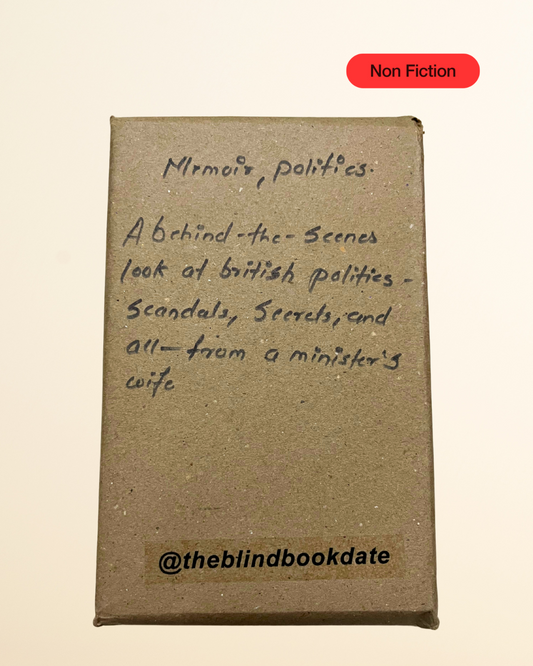 Non Fiction
Memoir, politics.
A behind-the-scenes
look at british politics -
scandals, secrets, and
all— from a minister's
wife
@theblindbookdate